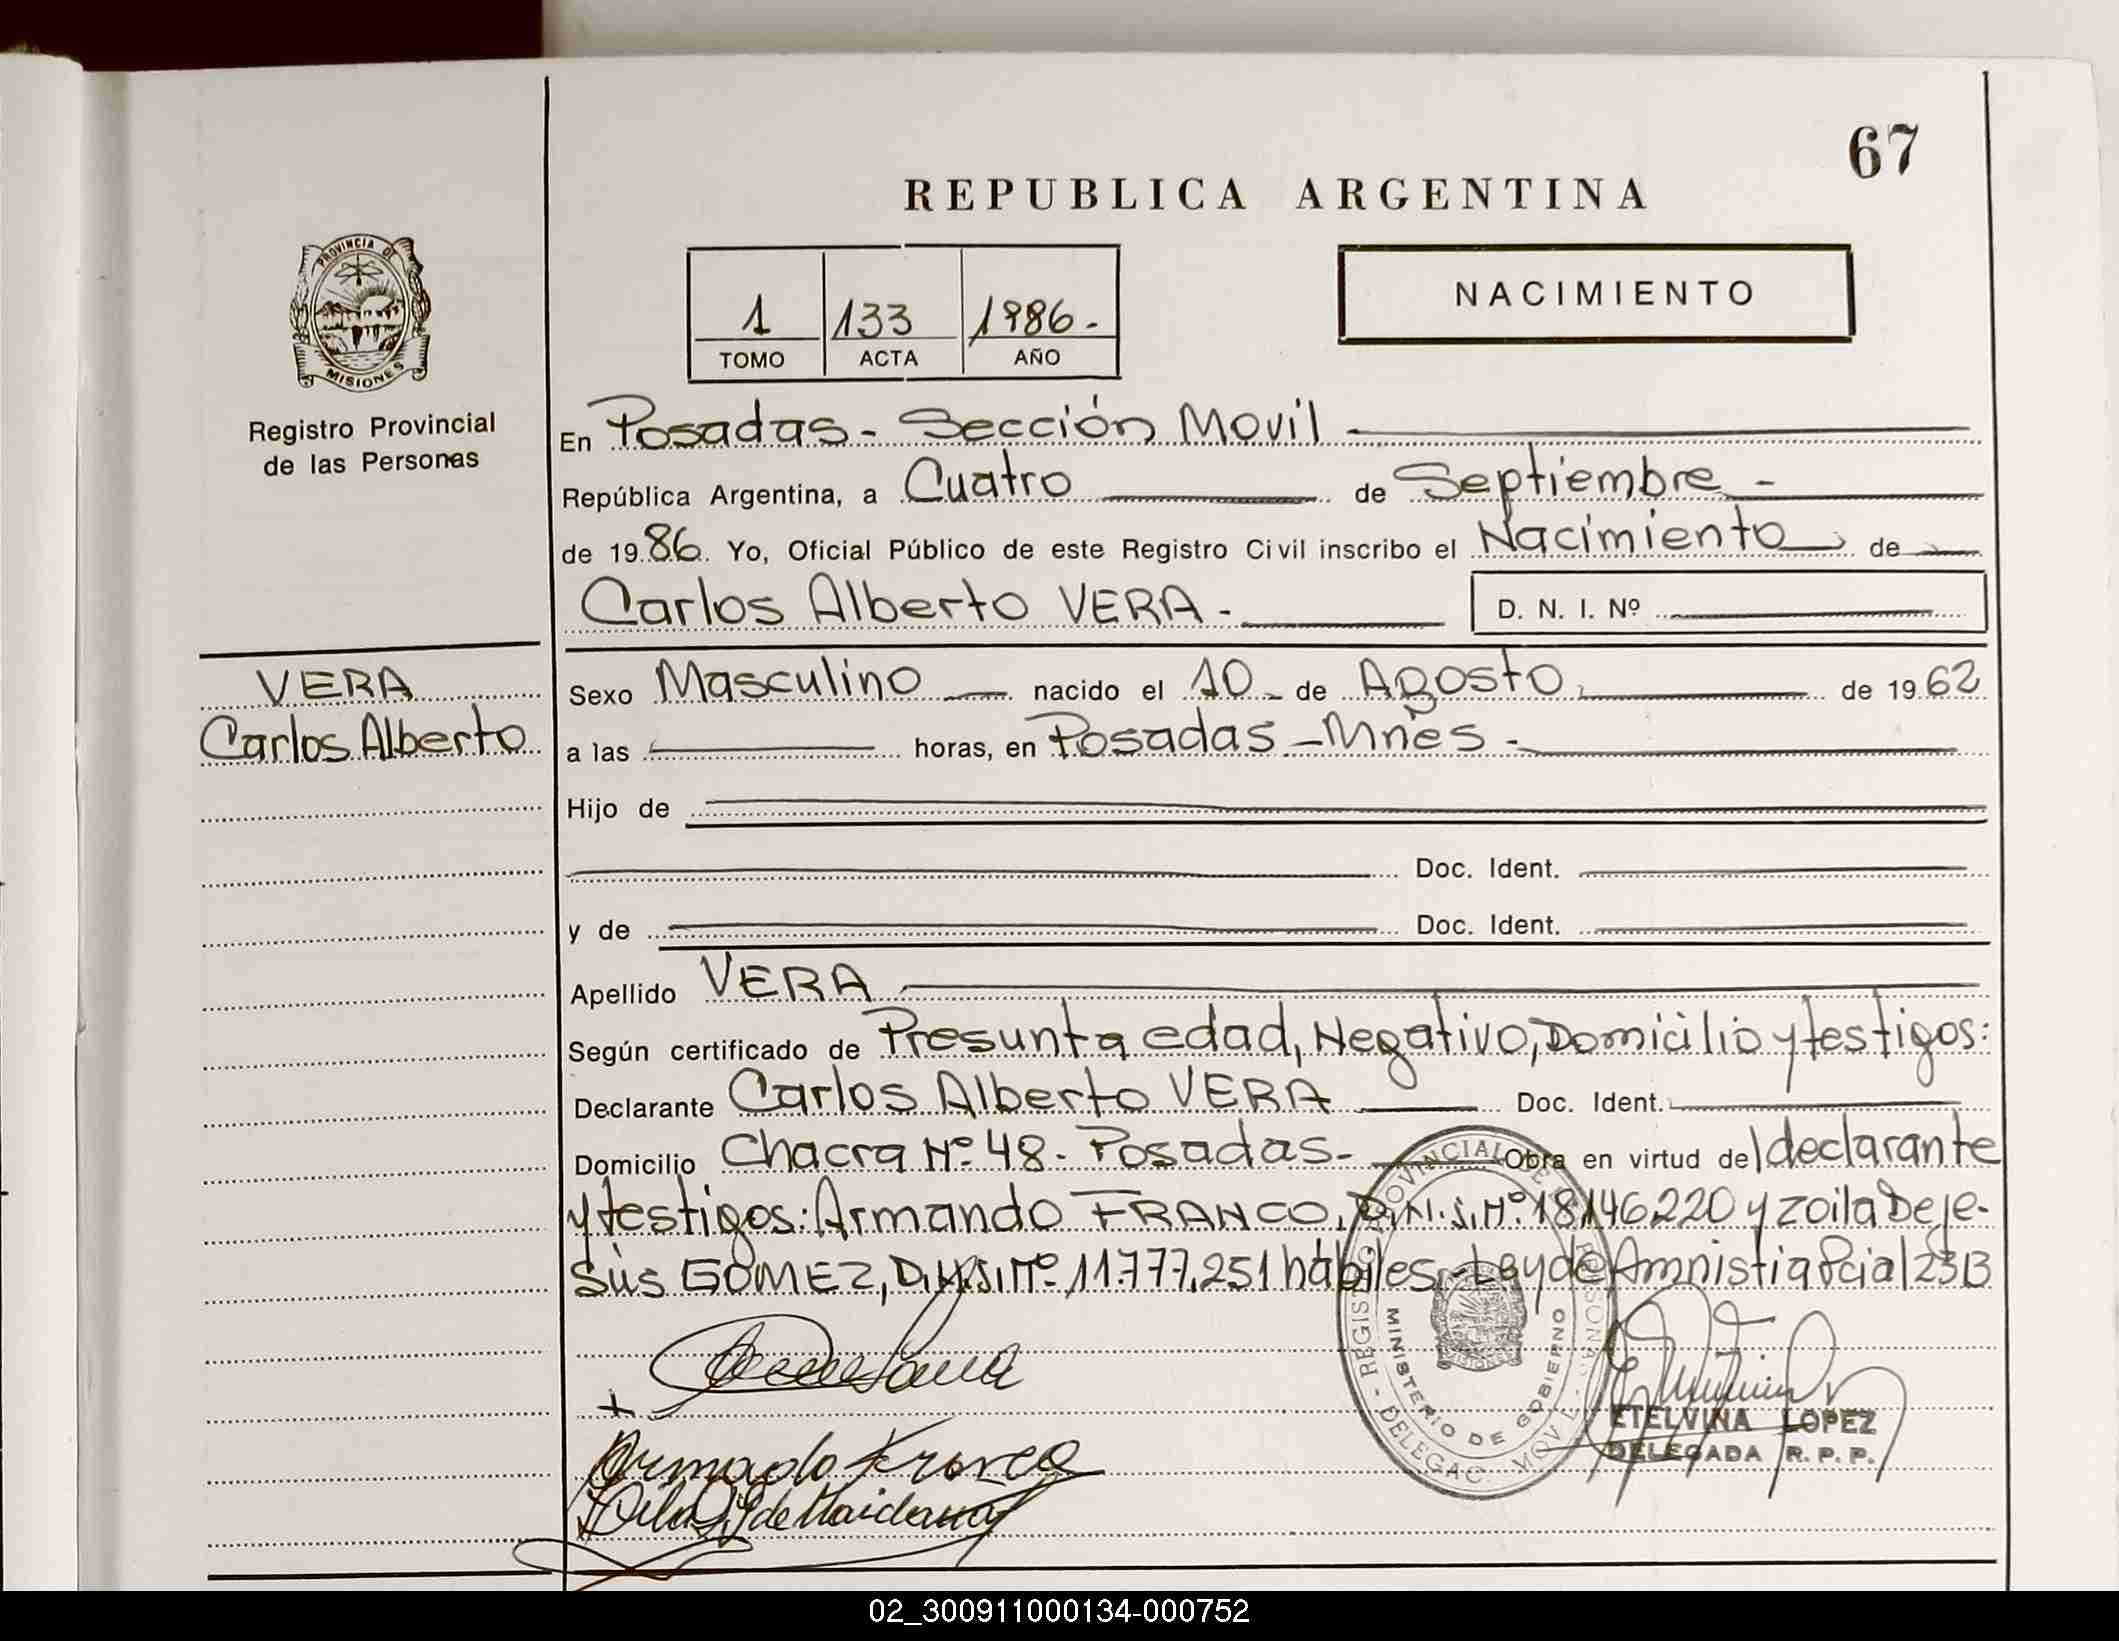 67
REPUBLICA ARGENTINA
PROVINCIA DE
MISIONES
Registro Provincial
de las Personas
1 133 1986.-
TOMO ACTA AÑO
NACIMIENTO
En Posadas - Sección Movil
República Argentina, a Cuatro de Septiembre -
de 1986. Yo, Oficial Público de este Registro Civil inscribo el Nacimiento de
Carlos Alberto VERA - D. N. I. Nº
VERA
Carlos Alberto
Sexo Masculino nacido el 10 - de Agosto de 1962
a las horas, en Posadas - Mnes -
Hijo de
Doc. Ident.
y de Doc. Ident.
Apellido VERA
Según certificado de Presunta edad, Negativo, Domicilio y testigos:
Declarante Carlos Alberto VERA Doc. Ident.
Domicilio Chacra Nº 48 - Posadas - Obra en virtud del declarante
y testigos: Armando FRANCO, D.N.I. Nº 18.146.220 y Zoila De Je-
sús GOMEZ, D.N.I. Nº 11.777.251 hábiles. - Ley de Amnistia Pcial 2313
MINISTERIO DE GOBIERNO
MISIONES
Armando Franco
ETELVINA LOPEZ
DELEGADA R. P. P.
02_300911000134-000752